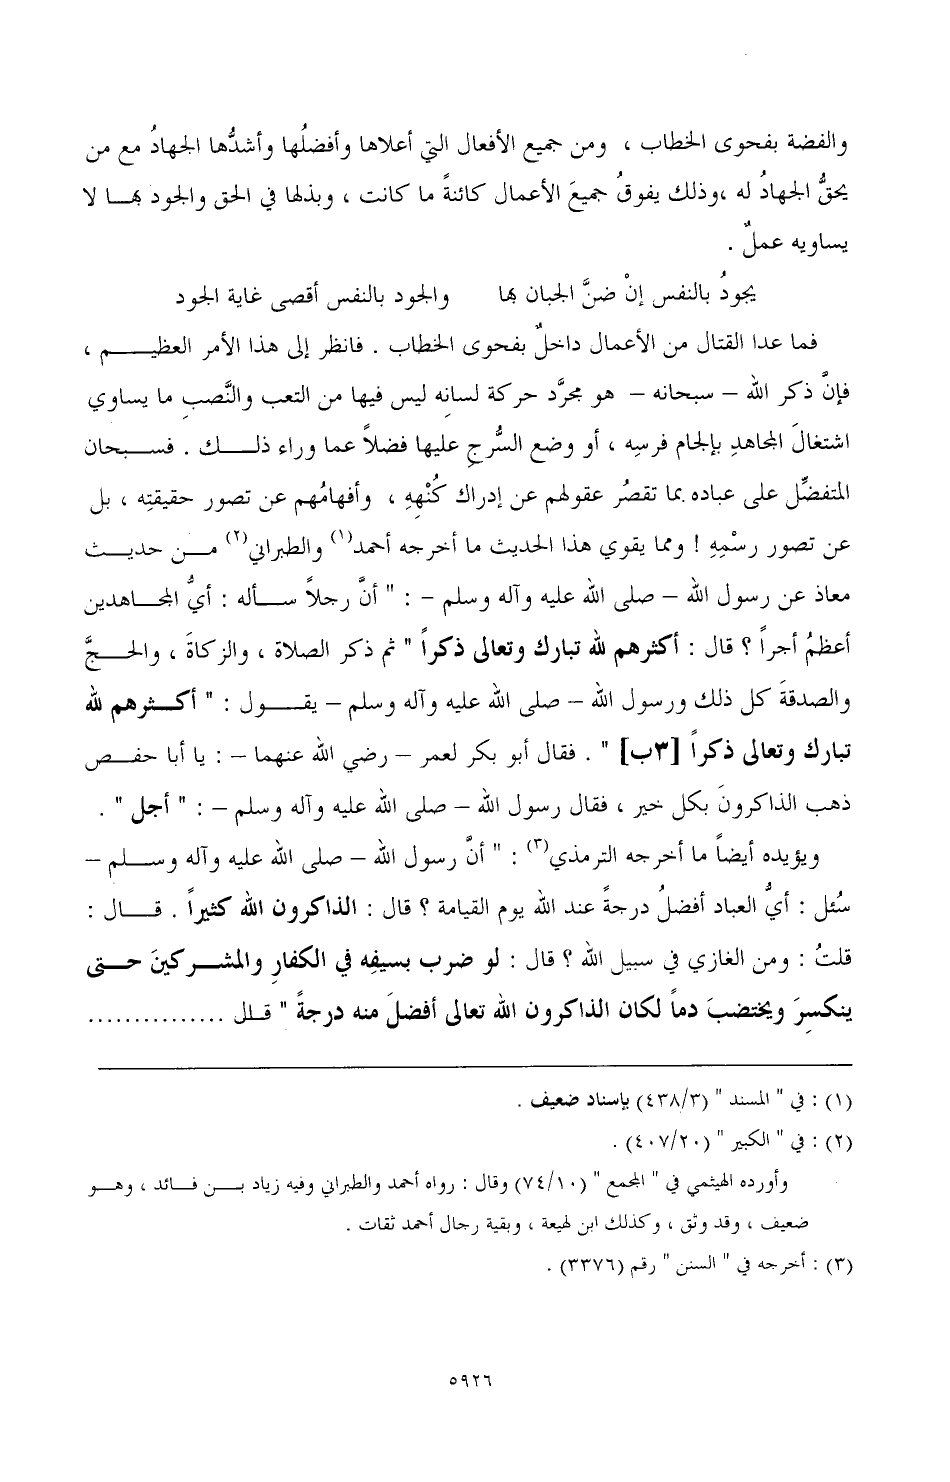 والفضة بفحوى الخطاب ، ومن جميع الأفعال التي أعلاها وأفضلُها وأشدُّها الجهادُ مع من
يحقُّ الجهادُ له ،وذلك يفوقُ جميعَ الأعمال كائنةً ما كانت ، وبذلها في الحق والجود بهـا لا
يساويه عملٌ .
يجودُ بالنفس إنْ ضنَّ الجبان بها والجود بالنفس أقصى غاية الجود
فما عدا القتال من الأعمال داخلٌ بفحوى الخطاب . فانظر إلى هذا الأمر العظيـم ،
فإنَّ ذكر الله – سبحانه – هو مجرَّد حركة لسانه ليس فيها من التعب والنَّصبِ ما يساوي
اشتغالَ المجاهدِ بإلجام فرسِه ، أو وضع السُّرجِ عليها فضلاً عما وراء ذلـك . فسـبحان
المتفضِّل على عباده بما تقصُر عقولهم عن إدراك كُنْههِ ، وأفهامُهم عن تصور حقيقتِه ، بل
عن تصور رسْمِهِ ! ومما يقوي هذا الحديث ما أخرجه أحمد(١) والطبراني(٢) مـن حديـث
معاذ عن رسول الله – صلى الله عليه وآله وسلم – : " أنَّ رجلاً سـأله : أيُّ المجـاهدين
أعظمُ أجراً ؟ قال : أكثرهم لله تبارك وتعالى ذكراً " ثم ذكر الصلاة ، والزكاةَ ، والحـجَّ
والصدقةَ كل ذلك ورسول الله – صلى الله عليه وآله وسلم – يقـول : " أكـثرهم لله
تبارك وتعالى ذكراً [٣ب] " . فقال أبو بكر لعمر – رضي الله عنهما – : يا أبا حفـص
ذهب الذاكرونَ بكل خير ، فقال رسول الله – صلى الله عليه وآله وسلم – : " أجل " .
ويؤيده أيضاً ما أخرجه الترمذي(٣) : " أنَّ رسول الله – صلى الله عليه وآله وسـلم –
سُئل : أيُّ العباد أفضلُ درجةً عند الله يوم القيامة ؟ قال : الذاكرون الله كثيراً . قـال :
قلتُ : ومن الغازي في سبيل الله ؟ قال : لو ضرب بسيفِه في الكفارِ والمشـركينَ حـتى
ينكسِرَ ويختضبَ دماً لكان الذاكرون الله تعالى أفضلَ منه درجةً " قـلل ...............
(١) : في " المسند " (٤٣٨/٣) بإسناد ضعيف .
(٢) : في " الكبير " (٤٠٧/٢٠) .
وأورده الهيثمي في " المجمع " (٧٤/١٠) وقال : رواه أحمد والطبراني وفيه زياد بـن فـائد ، وهـو
ضعيف ، وقد وثق ، وكذلك ابن لهيعة ، وبقية رجال أحمد ثقات .
(٣) : أخرجه في " السنن " رقم (٣٣٧٦) .
٥٩٢٦